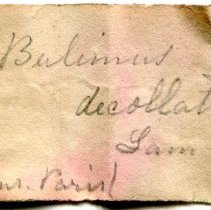 Bulimus
decollat
Lam
Paris)